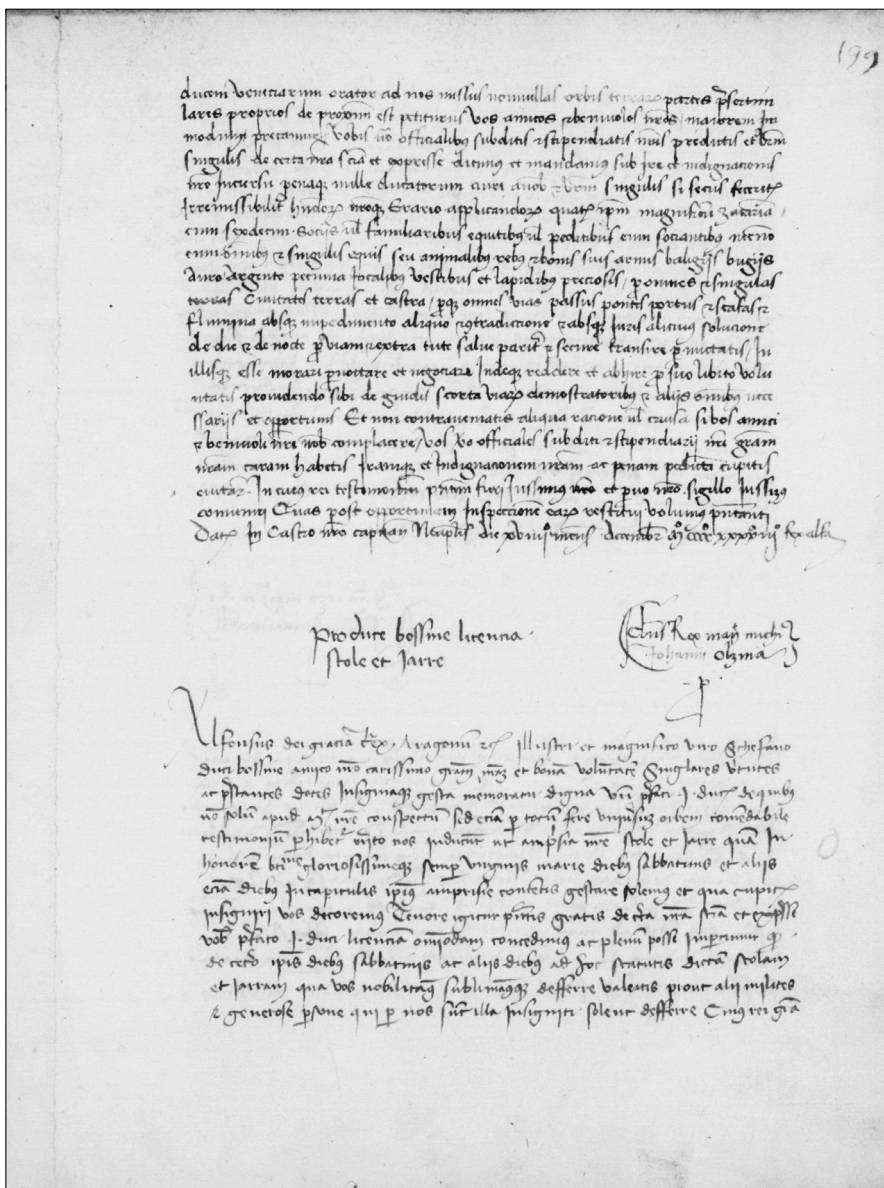 199
ducem veneciarum orator ad nos missus nonnullas orbis terrarum partes p̃sertim
lares proprios de proximo est petiturus vos amicos & benivolos nr̃os maiorem in
modum precamur vobis ṽo officialibus subditis & stipendiariis nr̃is predictis et
singulis de certa nr̃a sc̃ia et expresse dicimus et mandamus sub Ire et indignacionis
nr̃e Incursu penaq̃ mille ducatorum singulis si secus
Irremissibilit̃ nr̃oq̃ Erario applicandoꝝ quat̃s ip̃m magnificũ
cum sexdecim sociis ul̃ familiaribus equitibus ul̃ peditibus eum sociantibus necnõ
cum om̃ibus & singulis equis seu animalibus rebus & bonis suis armis baligijs bugijs
Auro Argento peccunia Jocalibus vestibus et lapidibus preciosis, p omnes & singulas
terras Civitates terras et castra, p̱q̃ omnes vias passus pontes portus & scafas &
flumina absq̃ impedimento aliquo & contradiccione & absq̃ Juris alicuius solucione
de die & de nocte p̱ viam & extra tute salve parit̃ & secure transire p̱mictatis, In
illisq̃ esse morari p̱noctare et negociari Indeq̃ reddere et abhire p̱ suo libito volu
ntatis providendo sibi de guidis scorta viaꝝ demostratoribus & alijs om̃ibus nece
ssarijs et opportunis Et non contraveniatis aliqua racione ul̃ causa si vos amici
& benivoli nr̃i nob̃ complacere, vos ṽo officiales subditi & stipendiarij nr̃i gr̃am
nr̃am caram habetis Iramq̃ et Indignacionem nr̃am ac penam cupitis
evitar̃ In cuius rei testimoniũ p̃ntem fieri Iussimus et nr̃o sigillo Iussimꝰ
Quas post opportunam Inspeccionem earũ restitui volumus p̃ntanti
Dat̃ In Castro nr̃o capuane Neap̃lis die mensis Decembr̃ Mº cccc xxxx vijº Rex alfo
Pro duce bossine licencia
stole et Jarre
Dñus Rex man̄ michi
Johanni Olzina
p
Alfonsus dei gracia Rex Aragonũ &c̃ Illustri et magnifico viro Schefano
duci bossine amico nr̃o carissimo gram̃ nr̃am et bonã volũtatẽ Singlares v̓tutes
ac p̃stantes dotes Insigniaq̃ gesta memoratu digna vr̃i p̃fati I. ducis de quibus
nõ solũ apud nr̃e conspectũ sed eciã p̱ totũ fere universũ orbem comẽdabile
testimoniũ p̱hibet̃ m̃ito nos inducũt ut amp̃sia nr̃e stole et Jarre quã In
honorẽ bt̃ime gloriosissimeq̃ semp̱ virginis marie diebus sabbatinis et aliis
eciã diebus In capitulis ip̃ius amprisie contentis gestare solemus et qua cupitis
insigniri vos decoremus Tenore igitur p̃ntis gratis de c̓ta nr̃a sc̃ia et exp̃sse
vob̃ p̃fato I. duci licenciã om̃odam concedimus ac plenũ posse Imp̱timur q̃
de cet̓o ip̃is diebus sabbatinis ac aliis diebus ad hoc statutis dictã stolam
et Jarram qua vos nobilitam̃ sublimamꝰq̃ defferre valeatis prout alii milites
& generose p̱sone qui p̱ nos sũt illa Insigniti solent defferre Cuius rei gr̃a